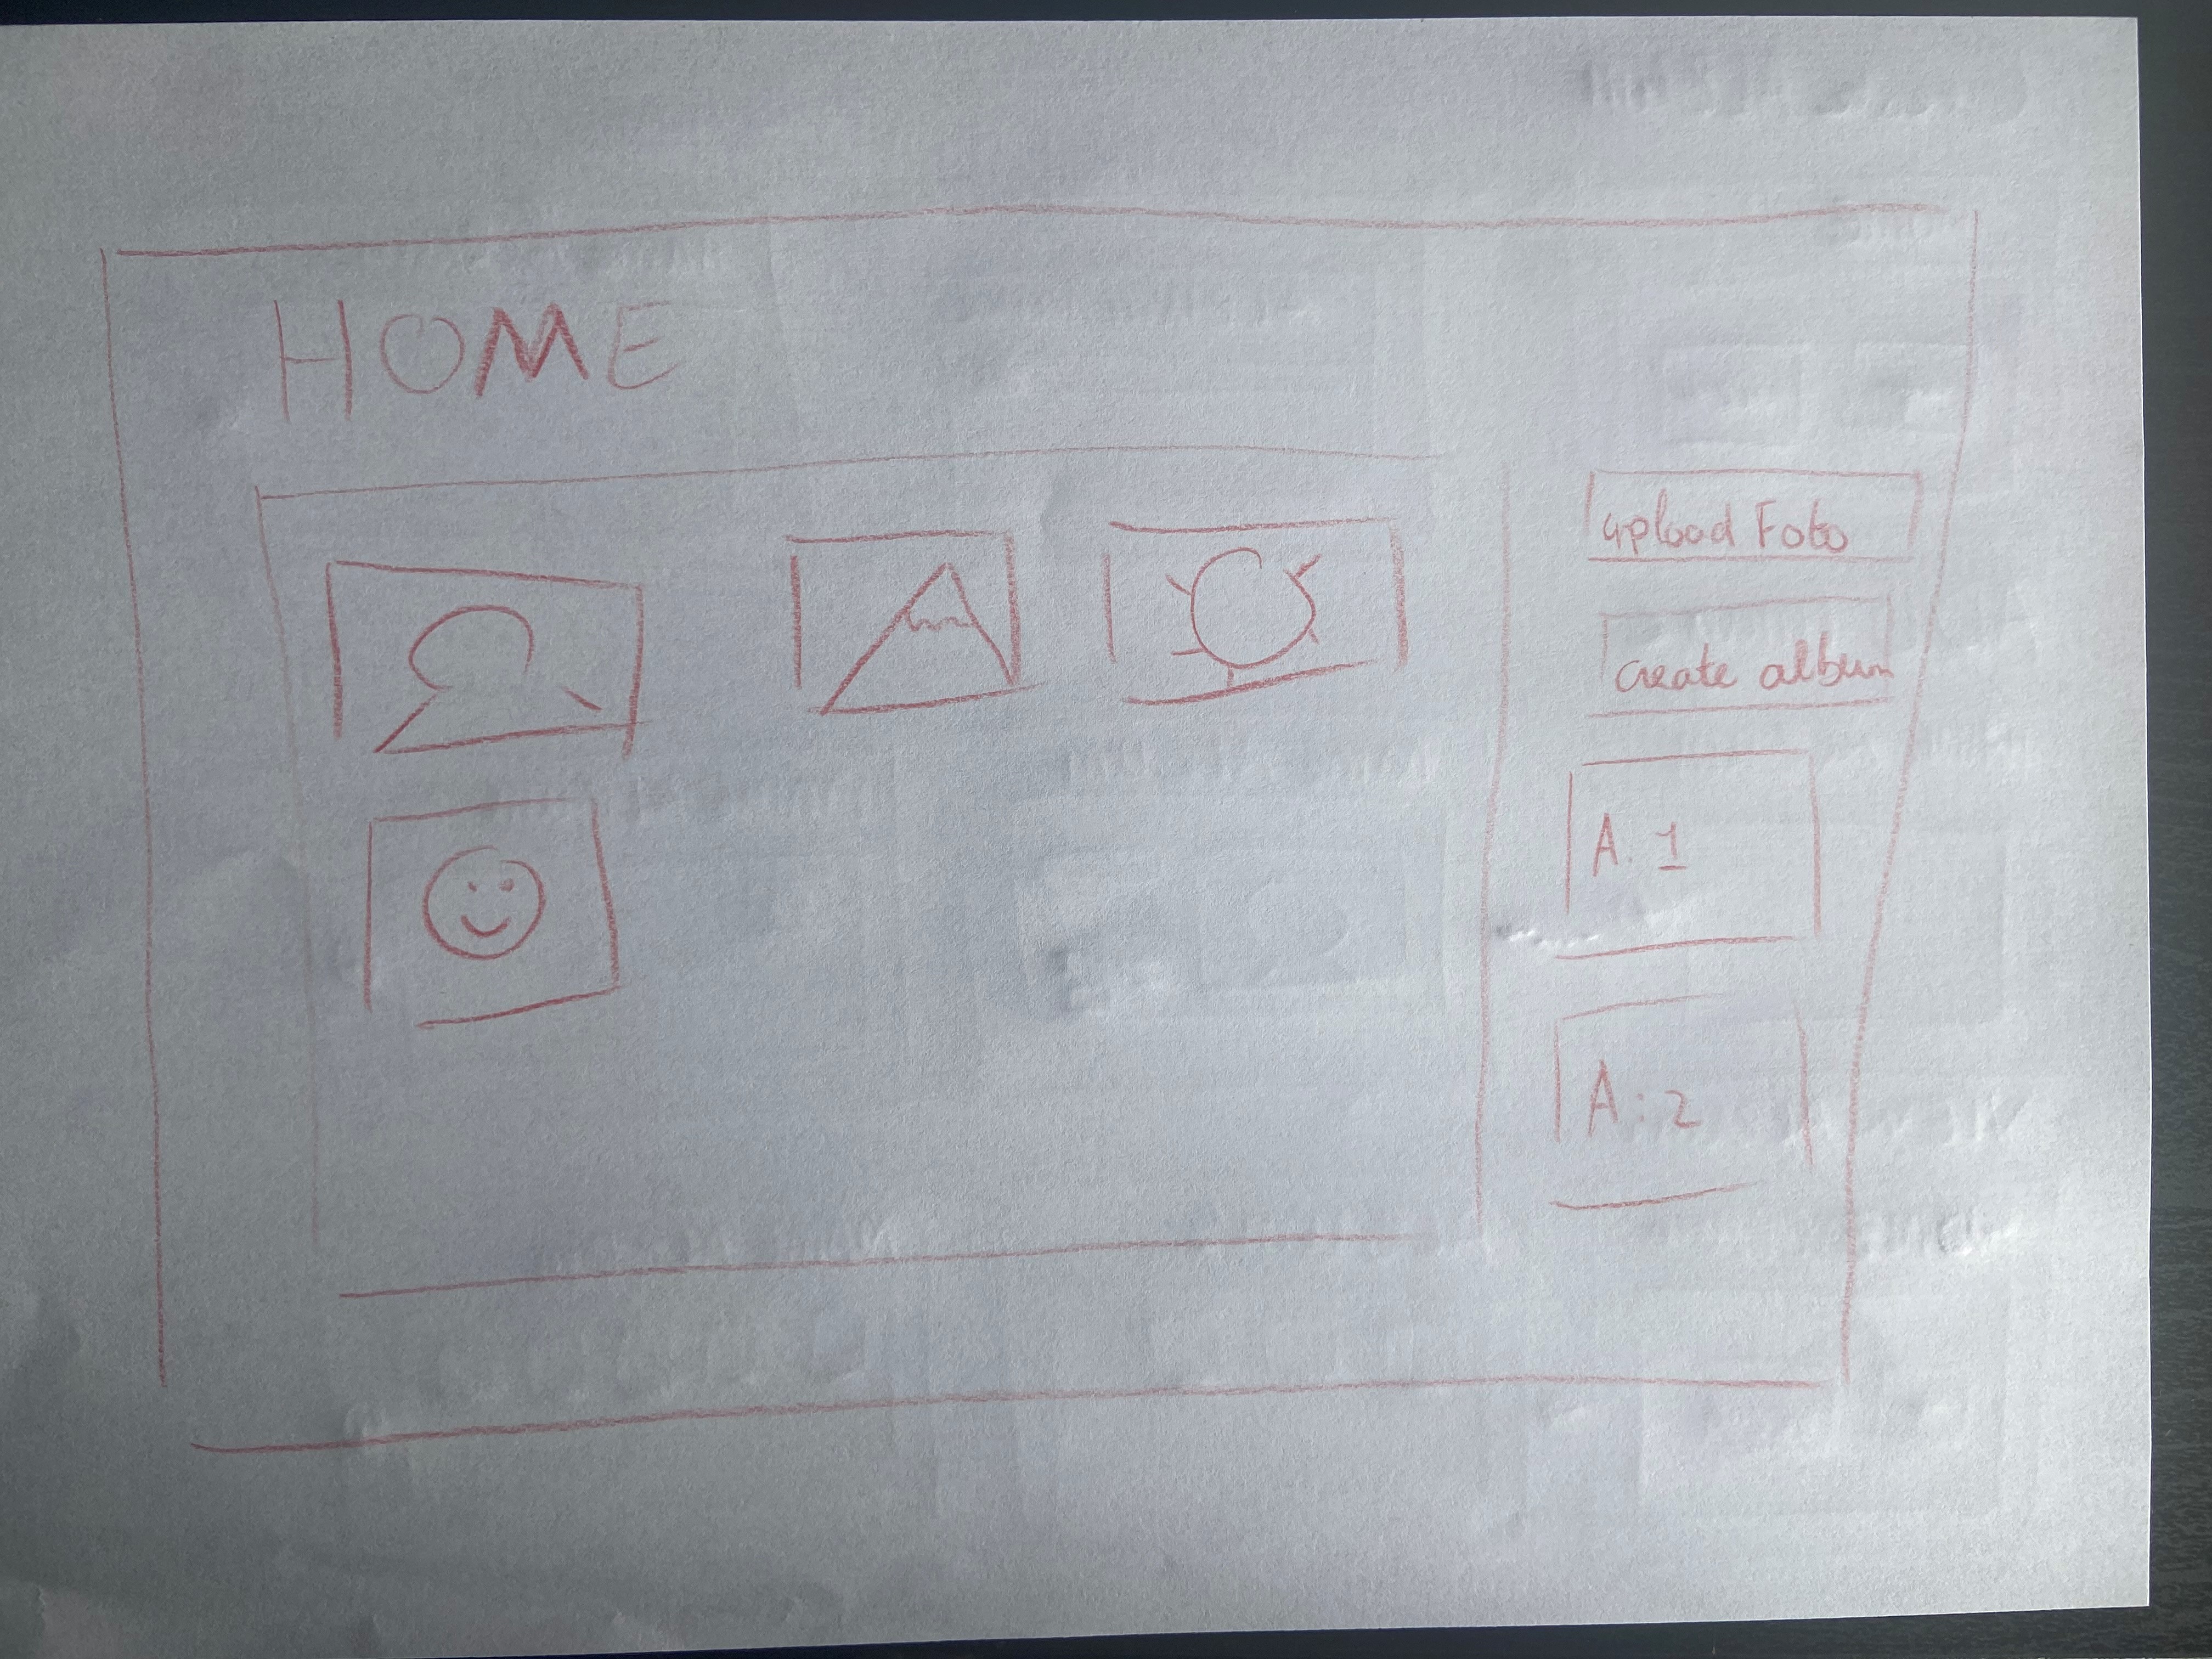 HOME
upload Foto
create album
A. 1
A: 2